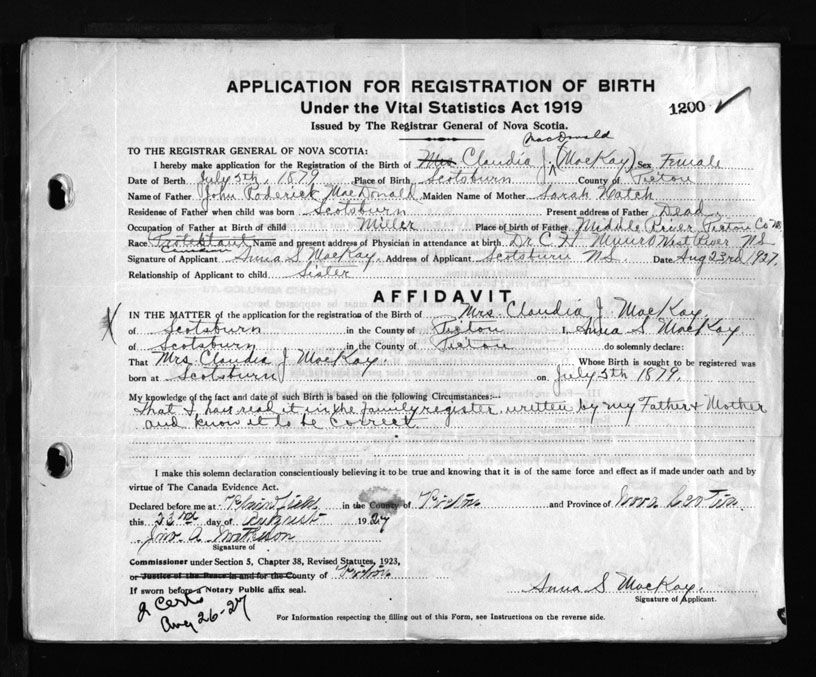 APPLICATION FOR REGISTRATION OF BIRTH
Under the Vital Statistics Act 1919
1200
Issued by The Registrar General of Nova Scotia.
MacDonald
TO THE REGISTRAR GENERAL OF NOVA SCOTIA:
I hereby make application for the Registration of the Birth of Mrs Claudia J. (MacKay) Sex Female
Date of Birth July 5th, 1879 Place of Birth Scotsburn County of Pictou
Name of Father John Roderick MacDonald Maiden Name of Mother Sarah Hatch
Residense of Father when child was born Scotsburn Present address of Father Dead
Occupation of Father at Birth of child Miller Place of birth of Father Middle River, Pictou Co NS
Race Protestant Name and present address of Physician in attendance at birth Dr. C. H. Munro West River N.S.
Canadian
Signature of Applicant Anna S. MacKay. Address of Applicant Scotsburn N.S. Date Aug 23rd 1927.
Relationship of Applicant to child Sister
AFFIDAVIT
X
IN THE MATTER of the application for the registration of the Birth of Mrs. Claudia J. MacKay.
of Scotsburn in the County of Pictou I, Anna S MacKay
of Scotsburn in the County of Pictou do solemnly declare:
That Mrs. Claudia J MacKay. Whose Birth is sought to be registered was
born at Scotsburn on July 5th 1879.
My knowledge of the fact and date of such Birth is based on the following Circumstances:—
That I have read it in the family register written by my Father & Mother
and know it to be correct.
I make this solemn declaration conscientiously believing it to be true and knowing that it is of the same force and effect as if made under oath and by
virtue of The Canada Evidence Act.
Declared before me at in the County of Pictou and Province of Nova Scotia
this day of August 1927
Jno. A. Matheson
Signature of
Commissioner under Section 5, Chapter 38, Revised Statutes, 1923,
or Justice of the Peace in and for the County of Pictou
If sworn before a Notary Public affix seal.
Anna S MacKay.
Signature of Applicant.
2 Certs
Aug 26-27
For Information respecting the filling out of this Form, see Instructions on the reverse side.